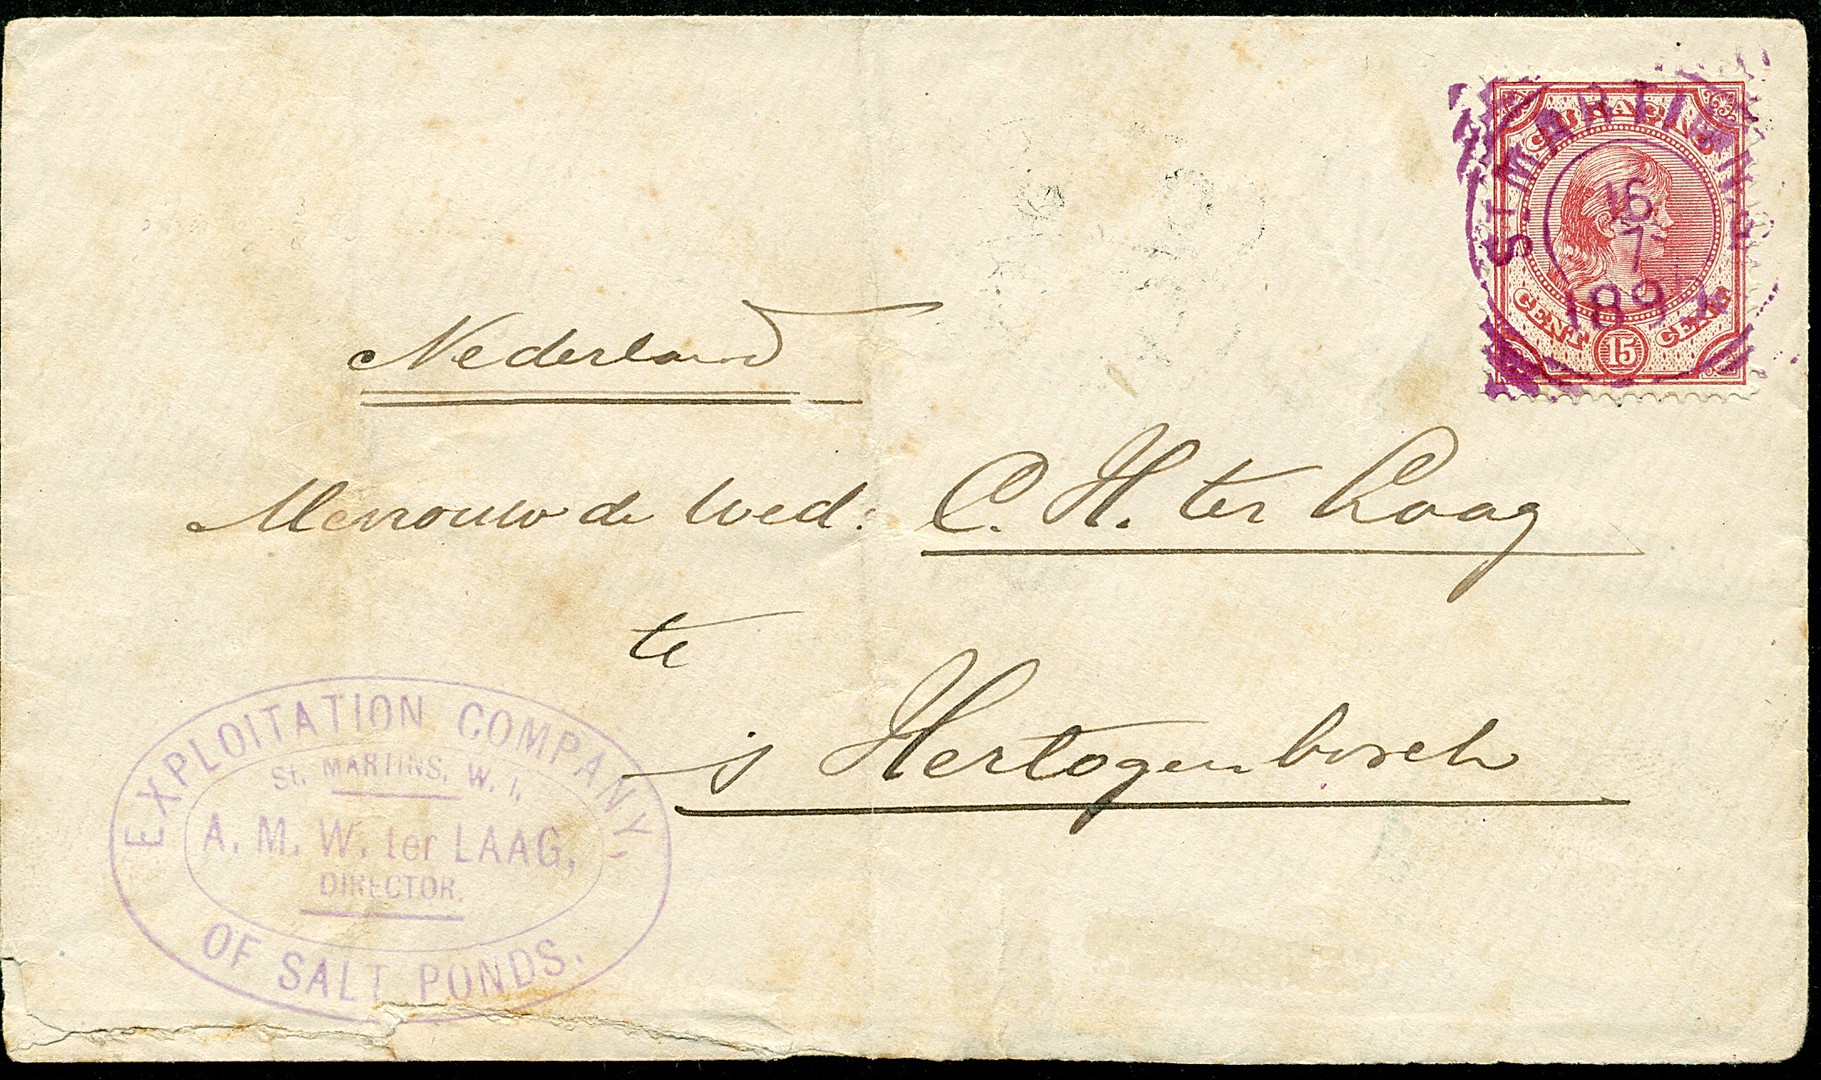 CURAÇAO
CENT 15 CENT
ST MARTIN
16
7
189
Nederland
Mevrouw de Wed: C. H. ter Laag
te
's Hertogenbosch
EXPLOITATION COMPANY,
St. MARTINS, W. I.
A. M. W. ter LAAG,
DIRECTOR.
OF SALT PONDS.